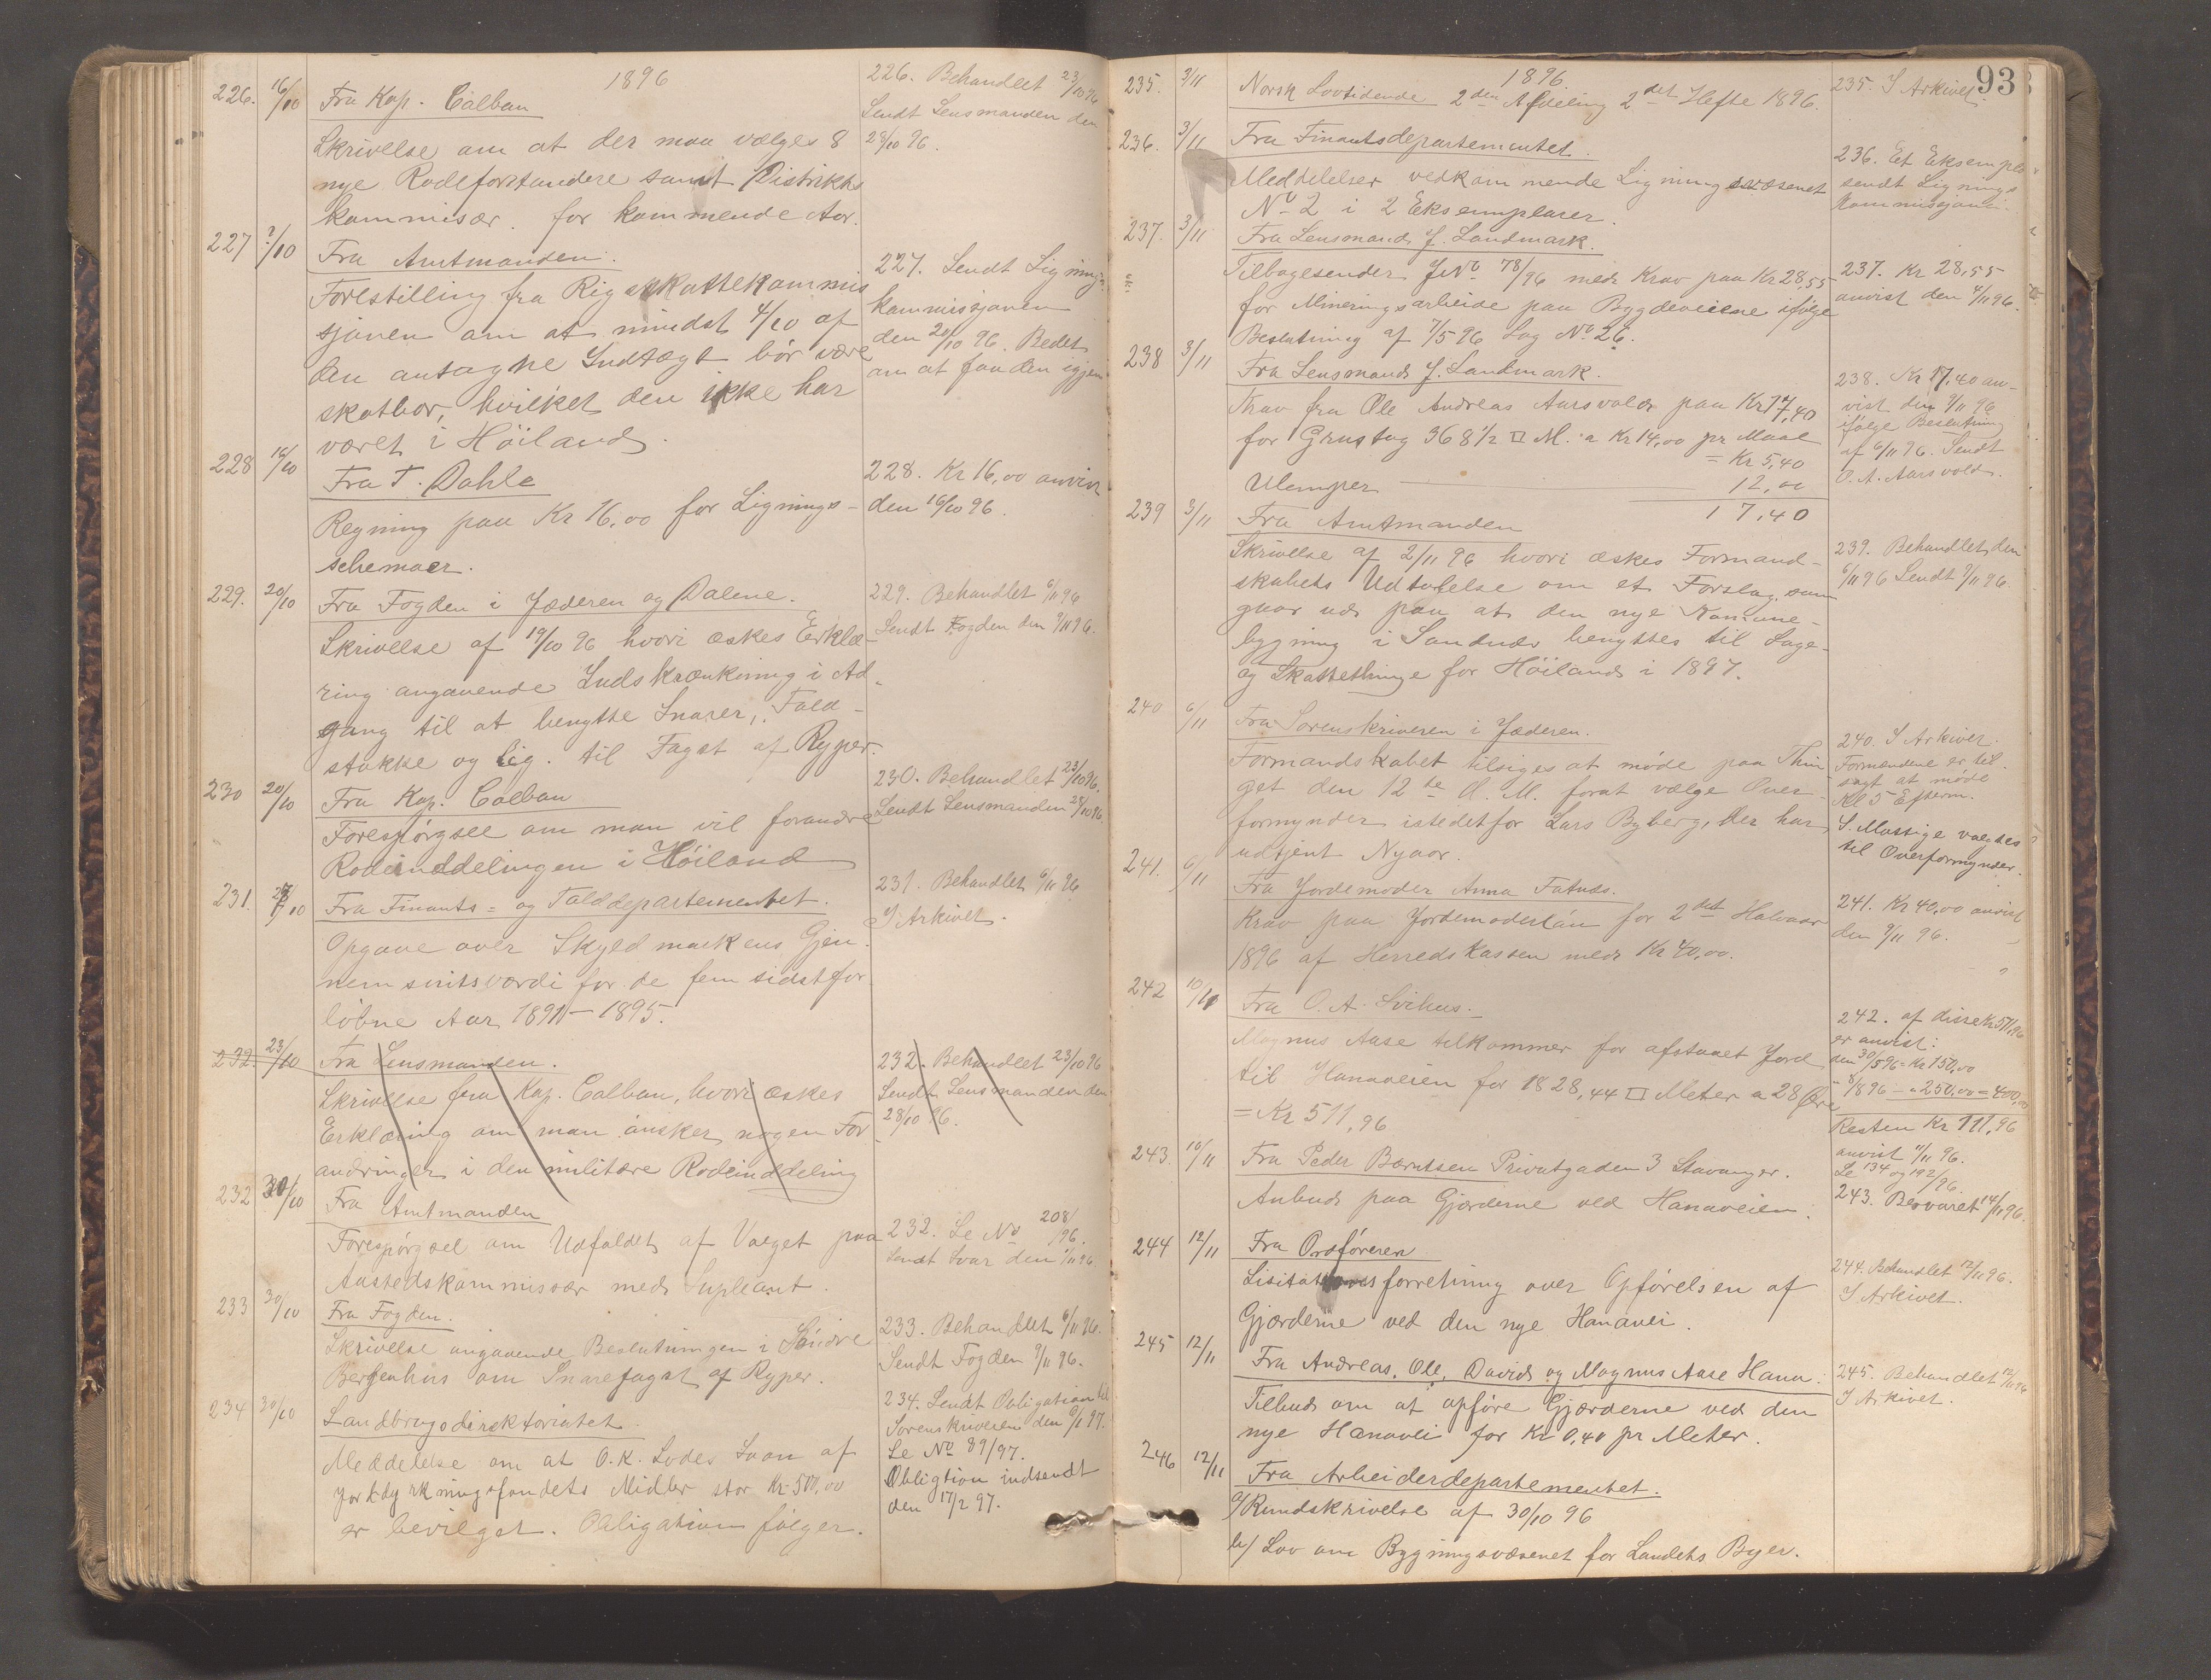 1896
226. 16/10 Fra Kap. Calban
Skrivelse om at der maa vælges 8
nye Rodeforstandere samt Distrikts
kommisær for kommende Aar.
226. Behandlet 23/10 96
Sendt Lensmanden den
28/10 96.
227 ?/10 Fra Amtmanden.
Forestilling fra Rigsskattekommis
sjonen om at mindst 4/10 af
den antagne Indtægt bør være
skatbar, hvilket den ikke har
været i Höiland.
227. Sendt Lignings
kommissjonen
den 20/10 96. Bedet
om at faa den igjen
228 16/10 Fra T. Dahle
Regning paa Kr 16,00 for Lignings-
schemaer.
228. Kr 16,00 anvist
den 16/10 96.
229. 20/10 Fra Fogden i Jæderen og Dalene.
Skrivelse af 19/10 96 hvori æskes Erklæ-
ring angaaende Indskrænkning i Ad-
gang til at benytte Snarer, Fald-
stokke og lig. til Fagst af Ryper.
229. Behandlet 6/11 96
Sendt Fogden den 9/11 96.
230 20/10 Fra Kap. Calban
Forespörgsel om man vil forandre
Rodeinddelingen i Höiland
230. Behandlet 23/10 96.
Sendt Lensmanden 28/10 96.
231. 27/10 Fra Finants- og Tolddepartementet.
Opgave over Skyldmarkens Gjen-
nemsnitsværdi for de fem sidst for
löbne Aar 1891-1895.
231. Behandlet 6/11 96
I Arkivet.
232. 23/10 Fra Lensmanden.
Skrivelse fra Kap. Calban, hvori æskes
Erklæring om man önsker nogen For
andringer i den militære Rodeinddeling
232. Behandlet 23/10 96
Sendt Lensmanden den
28/10 96.
232 30/10 Fra Amtmanden
Forespörgsel om Udfaldet af Valget paa
Aastedskommissær med Supleant.
232. Se No 208/96.
Sendt Svar den
233 30/10 Fra Fogden.
Skrivelse angaaende Beslutningen i Söndre
Bergenhus om Snarefagst af Ryper.
233. Behandlet 6/11 96.
Sendt Fogden 9/11 96.
234 30/10 Landbrugsdirektoriatet.
Meddelelse om at O. K. Lodes Laan af
Jorkdyrkningsfondets Midler stor Kr. 500,00
er bevilget. Obligation følger.
234. Sendt Obligation til
Sorenskriveren den 6/1 97.
Se No 89/97.
Obligtion indsendt
den 17/2 97.
93
1896.
235. 3/11 Norsk Lovtidende 2den Afdeling 2det Hefte 1896.
235. I Arkivet.
236. 3/11 Fra Finantsdepartementet.
Meddelelser vedkommende Ligningsvæsenet
No 2 i 2 Eksemplarer.
236. Et Eksempla
sendt Lignings
Kommissjonen.
237. 3/11 Fra Lensmand J. Landmark.
Tilbagesender J No 78/96 med Krav paa Kr 28,55
for Mineringsarbeide paa Bygdeveiene ifölge
Beslutning af 7/5 96 Sag No 26.
237. Kr 28,55
anvist den 4/11 96.
238 3/11 Fra Lensmand J. Landmark.
Krav fra Ole Andreas Aarsvold paa Kr 17,40
for Grustag 368 1/2 □ M. a Kr 14,00 pr Maal
= Kr 5,40
Ulemper 12,00
17,40
238. Kr 17,40 an-
vist den 9/11 96
ifølge Beslutning
af 6/11 96. Sendt
O. A. Aarsvold.
239 3/11 Fra Amtmanden
Skrivelse af 2/11 96 hvori æskes Formand-
skabets Udtalelse om et Forslag, som
gaar ud paa at den nye Kommune-
bygning i Sandnes benyttes til Sage-
og Skattethinge for Höiland i 1897.
239. Behandlet den
6/11 96 Sendt 9/11 96.
240 6/11 Fra Sorenskriveren i Jæderen.
Formandskabet tilsiges at møde paa Thin
get den 12te d. M. forat vælge Over-
formynder istedetfor Lars Byberg, der har
udtjent Nyaar.
240. I Arkivet.
Formændene er til-
sagt at møde
Kl 5 Efterm.
S. Mossige valgtes
til Overformynder.
241. 6/11 Fra Jordemoder Anna Fatnes.
Krav paa Jordemoderlön for 2det Halvaar
1896 af Herredskassen med Kr 40,00.
241. Kr 40,00 anvist
den 9/11 96.
242 10/11 Fra O. A. Svihus.
Magnus Aase tilkommer for afstaaet Jord
til Hanaveien for 1828,44 □ Meter a 28 Øre
= Kr 511,96
242. af disse Kr 511,96
er anvist:
den 30/5 96 = Kr 150,00
- 8/8 96 - " 250,00 = 400,00
Resten Kr 111,96
anvist 11/11 96.
Se 134 og 192/96.
243. 10/11 Fra Peder Berntsen Privatgaden 3 Stavanger.
Anbud paa Gjærderne ved Hanaveien.
243. Besvaret 14/11 96.
244 12/11 Fra Ordføreren
Lisitationsforretning over Opførelsen af
Gjærderne ved den nye Hanavei.
244. Behandlet 12/11 96.
I Arkivet.
245 12/11 Fra Andreas, Ole, David og Magnus Aase Hana:
Tilbud om at opføre Gjærderne ved den
nye Hanavei for Kr 0,40 pr Meter.
245. Behandlet 12/11 96
I Arkivet.
246 12/11 Fra Arbeiderdepartementet.
a/ Rundskrivelse af 30/10 96
b/ Lov om Bygningsvæsenet for Landets Byer.